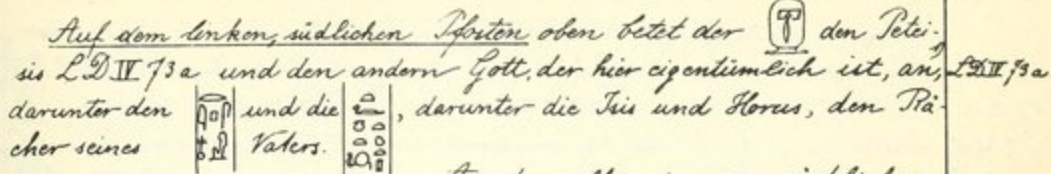 Auf dem linken, südlichen Pfosten oben betet der den Petei-
sis LD IV 73a und den andern Gott, der hier eigentümlich ist, an, LD IV 73a
darunter den und die , darunter die Isis und Horus, den Rä-
cher seines Vaters.